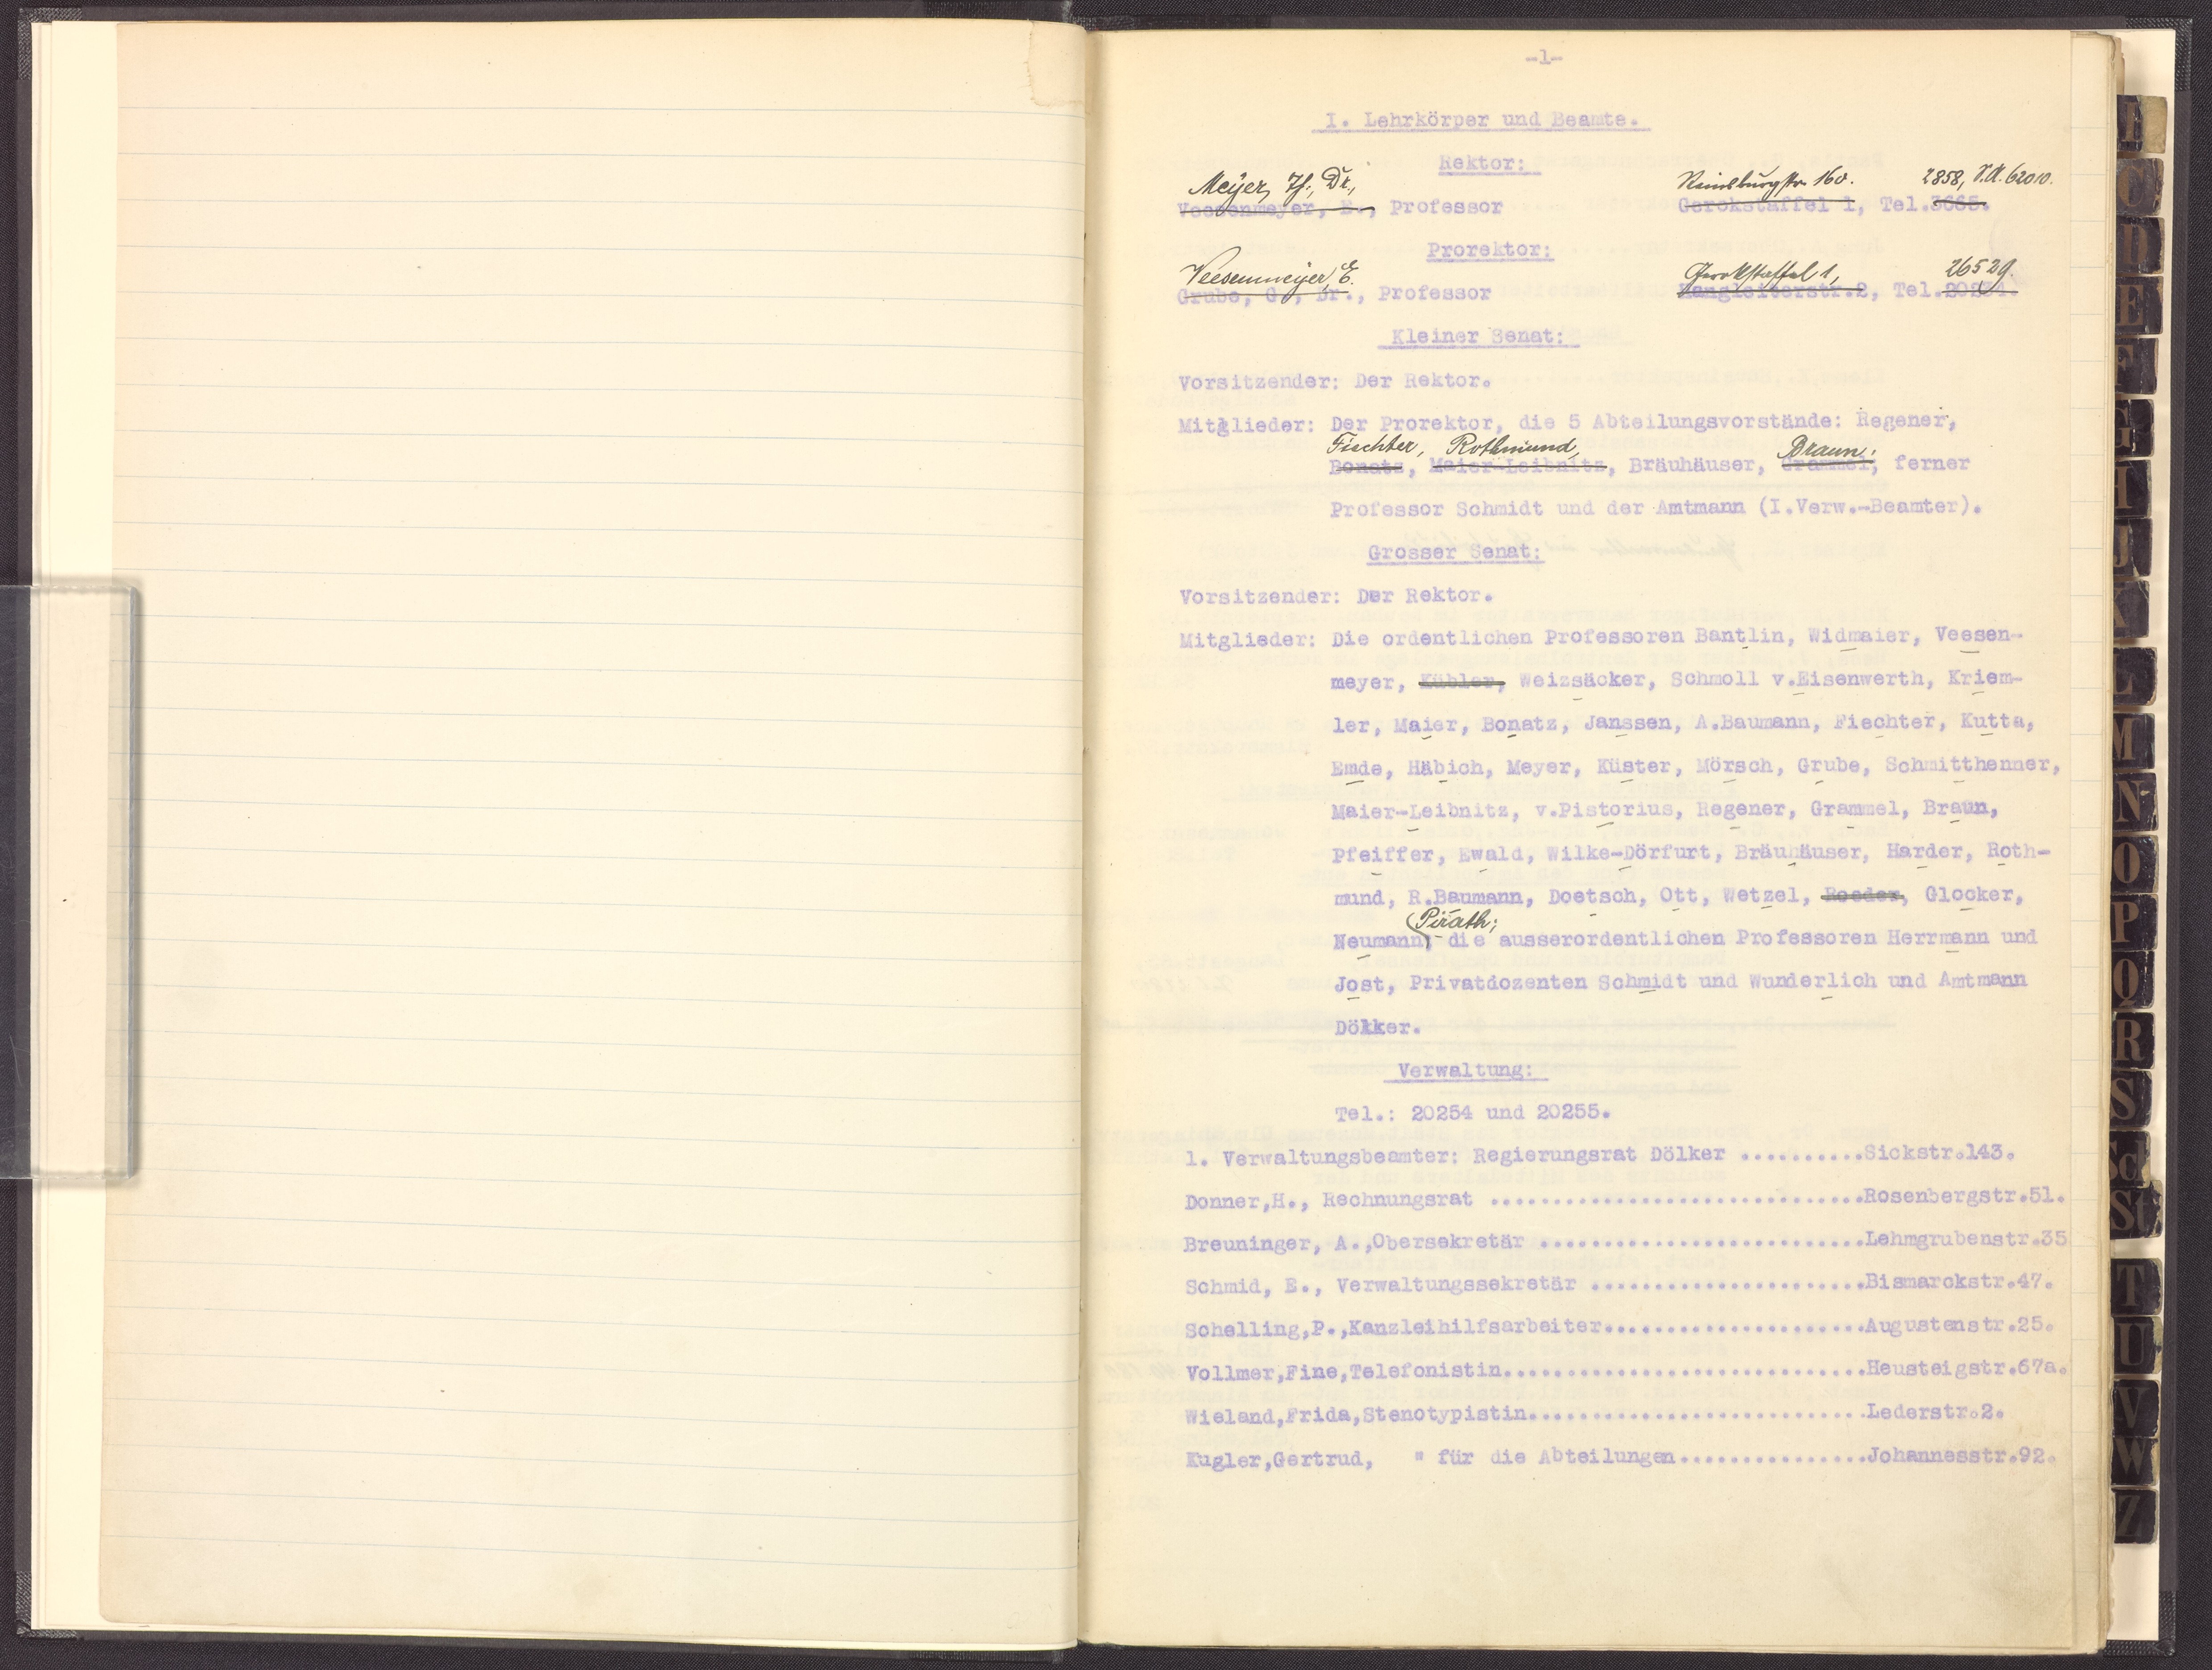 -1-
I. Lehrkörper und Beamte.
Rektor:
Meyer, Th., Dr., Reinsburgstr. 160. 2858, S.A. 62010.
Veesenmeyer, E., Professor Gerokstaffel 1, Tel.3665.
Prorektor:
Veesenmeyer, E. Gerokstaffel 1, 26529.
Grube, G., Dr., Professor Hangleiterstr.2, Tel.20231.
Kleiner Senat:
Vorsitzender: Der Rektor.
Mitglieder: Der Prorektor, die 5 Abteilungsvorstände: Regener,
Fiechter, Rothmund, Braun;
Bonatz, Maier-Leibnitz, Bräuhäuser, Grammel; ferner
Professor Schmidt und der Amtmann (I.Verw.-Beamter).
Grosser Senat:
Vorsitzender: Der Rektor.
Mitglieder: Die ordentlichen Professoren Bantlin, Widmaier, Veesen-
meyer, Kübler, Weizsäcker, Schmoll v.Eisenwerth, Kriem-
ler, Maier, Bonatz, Janssen, A.Baumann, Fiechter, Kutta,
Emde, Häbich, Meyer, Küster, Mörsch, Grube, Schmitthenner,
Maier-Leibnitz, v.Pistorius, Regener, Grammel, Braun,
Pfeiffer, Ewald, Wilke-Dörfurt, Bräuhäuser, Harder, Roth-
mund, R.Baumann, Doetsch, Ott, Wetzel, Roeder, Glocker,
Pirath;
Neumann; die ausserordentlichen Professoren Herrmann und
Jost, Privatdozenten Schmidt und Wunderlich und Amtmann
Dölker.
Verwaltung:
Tel.: 20254 und 20255.
1. Verwaltungsbeamter: Regierungsrat Dölker ..........Sickstr.143.
Donner,H., Rechnungsrat ..............................Rosenbergstr.51.
Breuninger, A.,Obersekretär ..........................Lehmgrubenstr.35
Schmid, E., Verwaltungssekretär ......................Bismarckstr.47.
Schelling,P.,Kanzleihilfsarbeiter.....................Augustenstr.25.
Vollmer,Fine,Telefonistin.............................Heusteigstr.67a.
Wieland,Frida,Stenotypistin...........................Lederstr.2.
Kugler,Gertrud, " für die Abteilungen...............Johannesstr.92.
I
C
D
E
F
G
H
J
K
L
M
N
O
P
Q
R
S
Sch
St
T
U
V
W
Z